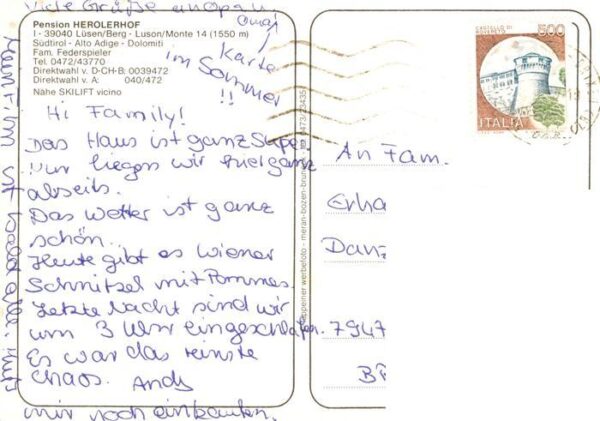 Viele Grüße an Opa
Oma!
Karte
im Sommer
!!
Pension HEROLERHOF
I - 39040 Lüsen/Berg - Luson/Monte 14 (1550 m)
Südtirol - Alto Adige - Dolomiti
Fam. Federspieler
Tel. 0472/43770
Direktwahl v. D-CH-B: 0039472
Direktwahl v. A: 040/472
Nähe SKILIFT vicino
Hi Family!
Das Haus ist ganz Super.
Nur liegen wir ganz
abseits.
Das Wetter ist ganz
schön.
Heute gibt es wiener
Schnitzel mit Pommes.
Letzte Nacht sind wir
um 3 Uhr eingeschlafen.
Es war das reinste
Chaos. Andy
mir noch einkaufen.
ist bald alle. Muß
werbefoto - meran-bozen
CASTELLO DI
ROVERETO
500
ITALIA
An Fam.
Erha
Danz
7947